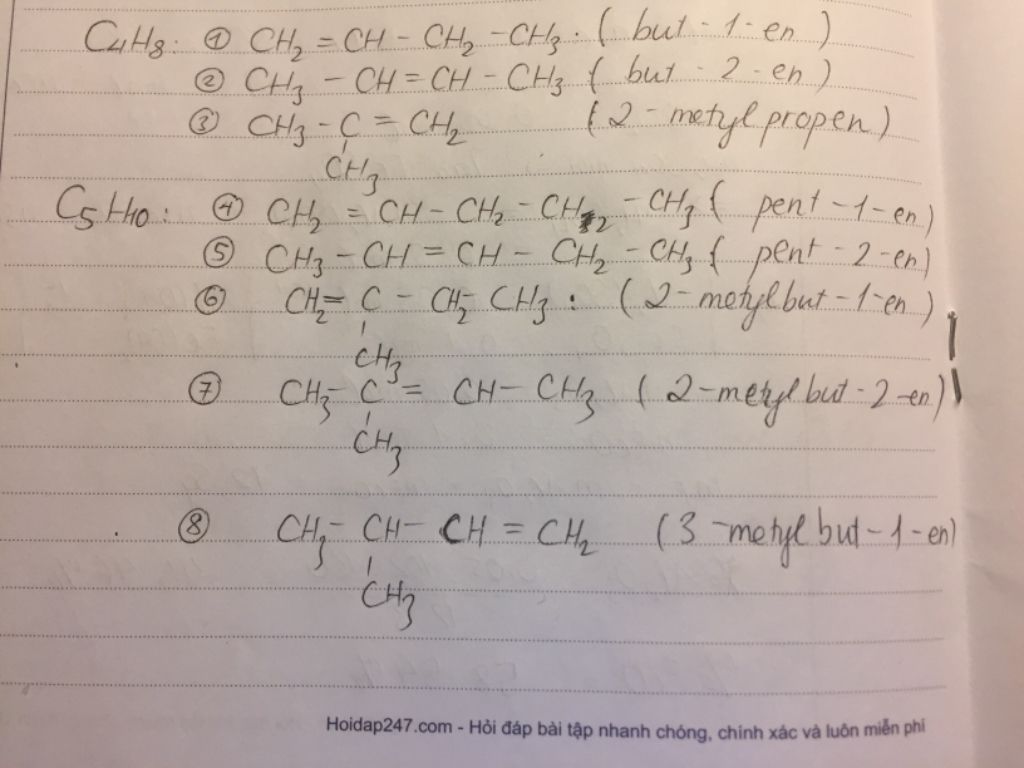 C4H8: ① CH2 = CH - CH2 - CH3. ( but - 1 - en )
② CH3 - CH = CH - CH3 ( but - 2 - en )
③ CH3 - C = CH2 ( 2 - metyl propen )
CH3
C5H10: ④ CH2 = CH - CH2 - CH2 - CH3 ( pent - 1 - en )
⑤ CH3 - CH = CH - CH2 - CH3 ( pent - 2 - en )
⑥ CH2 = C - CH2 - CH3 : ( 2 - metylbut - 1 - en )
CH3
⑦ CH3 - C = CH - CH3 ( 2 - metyl but - 2 - en )
CH3
⑧ CH3 - CH - CH = CH2 ( 3 - metyl but - 1 - en )
CH3
Hoidap247.com - Hỏi đáp bài tập nhanh chóng, chính xác và luôn miễn phí